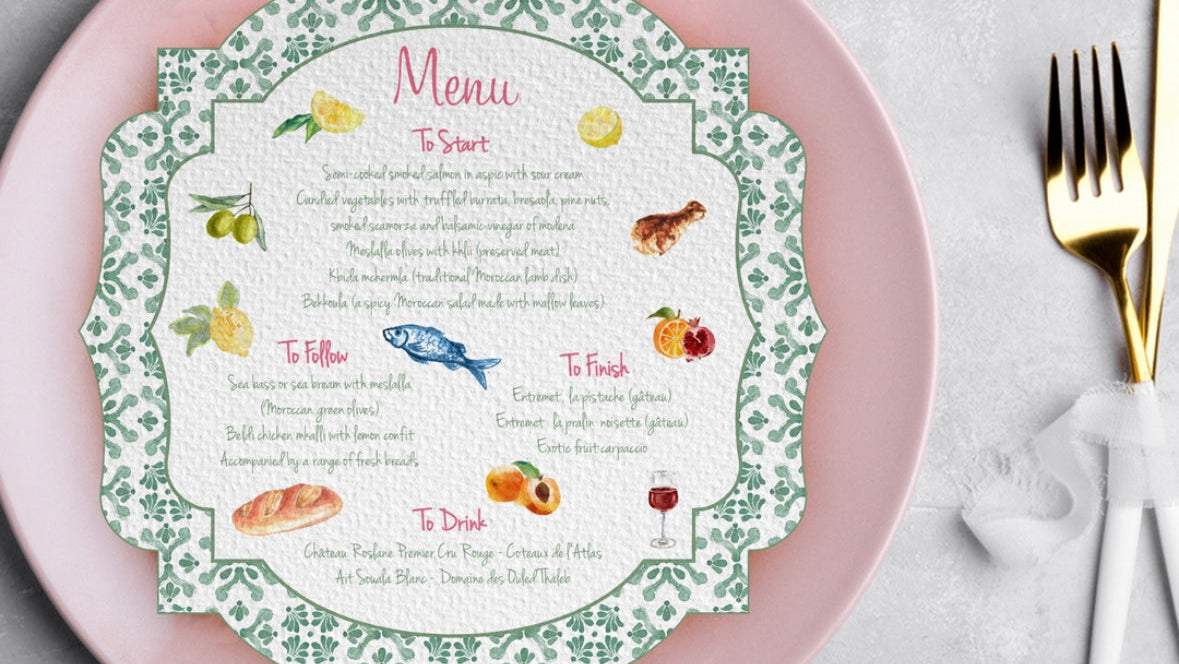 Menu
To Start
Semi-cooked smoked salmon in aspic with sour cream
Candied vegetables with truffled burrata, bresaola, pine nuts,
smoked scamorza and balsamic vinegar of modena
Meslalla olives with khlii (preserved meat)
Kbida mchermla (traditional Moroccan lamb dish)
Bekkoula (a spicy Moroccan salad made with mallow leaves)
To Follow
Sea bass or sea bream with meslalla
(Moroccan green olives)
Beldi chicken mkalli with lemon confit
Accompanied by a range of fresh breads
To Finish
Entremet la pistache (gâteau)
Entremet la pralin noisette (gâteau)
Exotic fruit carpaccio
To Drink
Château Roslane Premier Cru Rouge - Coteaux de l'Atlas
Ait Souala Blanc - Domaine des Ouled Thaleb